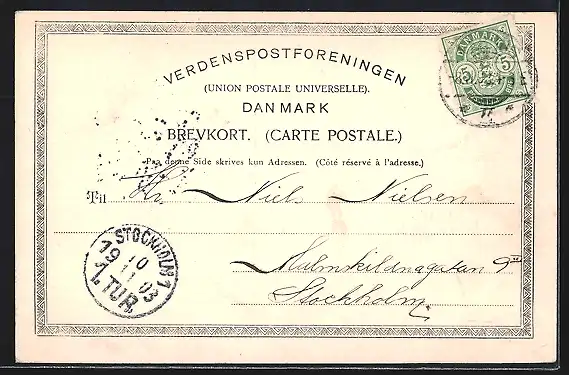 VERDENSPOSTFORENINGEN
(UNION POSTALE UNIVERSELLE).
DANMARK
BREVKORT. (CARTE POSTALE.)
Paa denne Side skrives kun Adressen. (Côté réservé à l'adresse.)
Til Hr. Niels Nielsen
Malmskildnagatan 9
Stockholm.
DANMARK
5 5
STOCKHOLM 1
10
19 11 03
1. TUR.